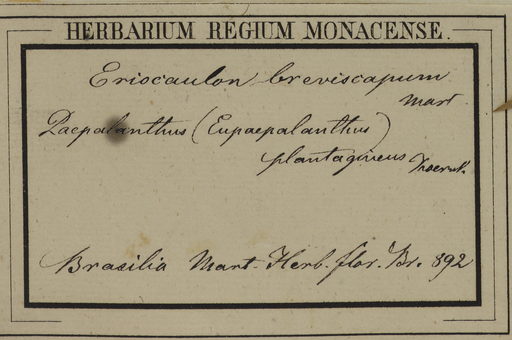 HERBARIUM REGIUM MONACENSE.
Eriocaulon breviscapum
Mart
Paepalanthus (Eupaepalanthus)
plantagineus Koernk.
Brasilia Mart. Herb. flor. Br. 892